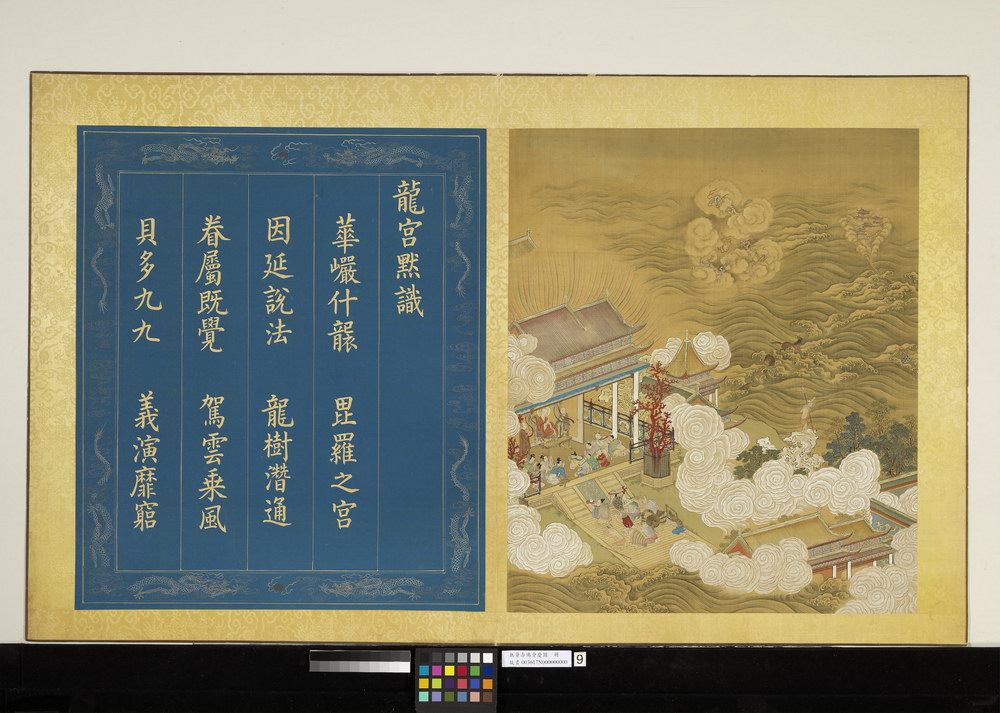 龍宮默識
華嚴什襲 毘羅之宮
因延說法 龍樹潛通
眷屬既覺 駕雲乗風
貝多九九 義演靡窮
9